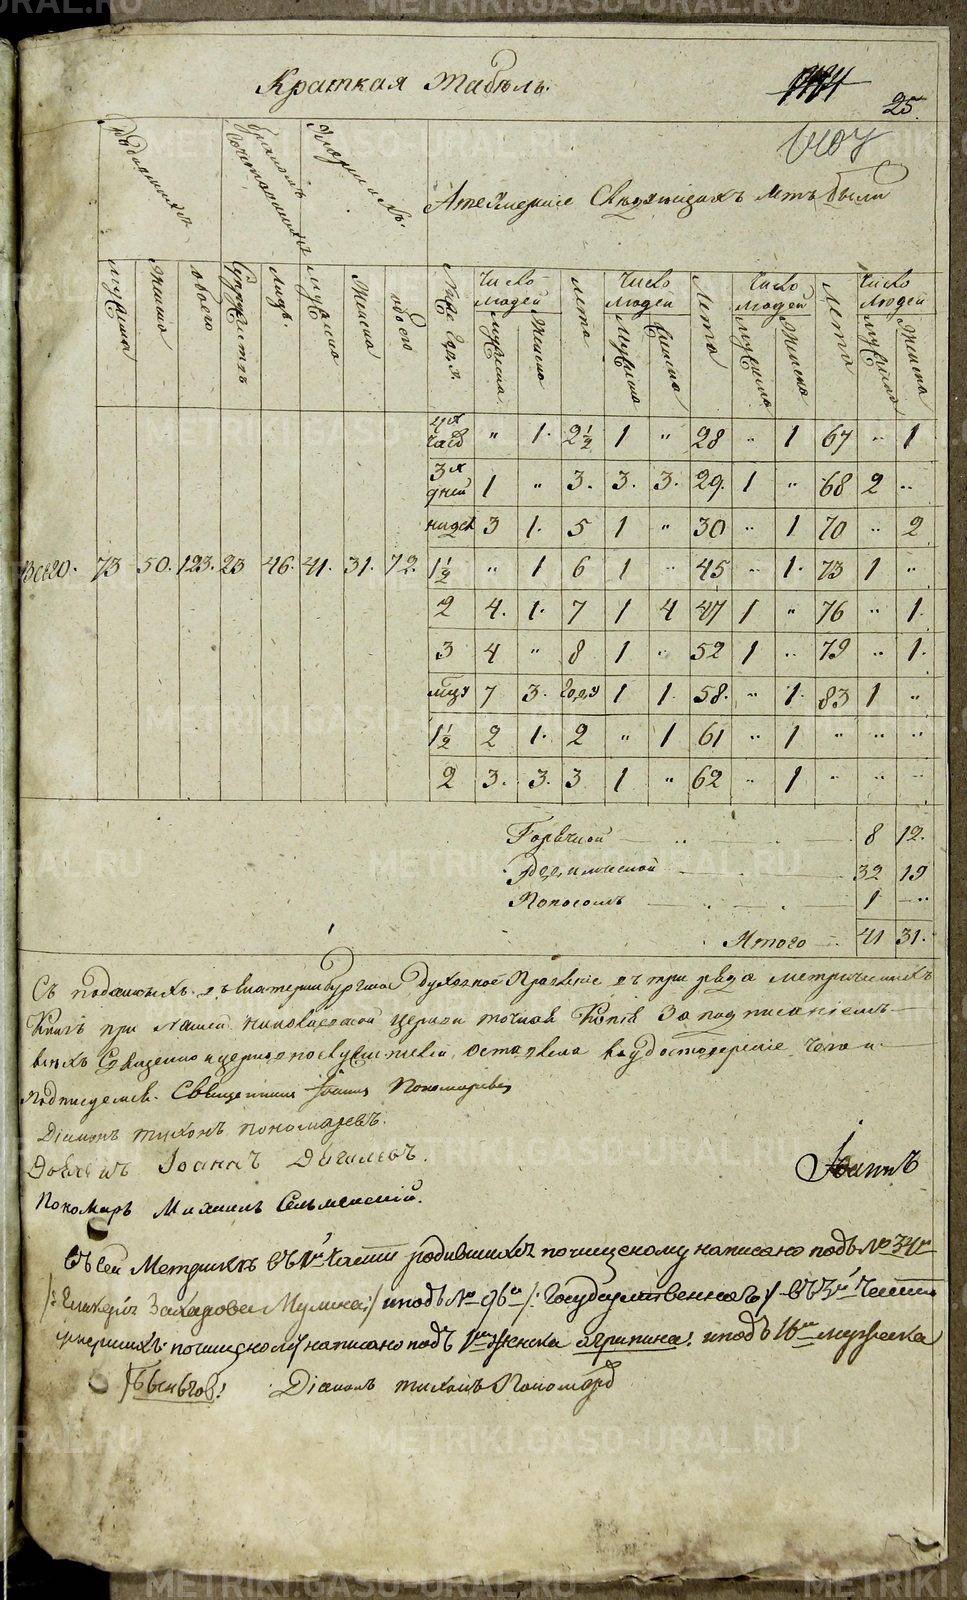 Краткая Табель.
25.
Родившихся
Бракомъ сочетавшихся
Умершихъ.
Ате Умершіе Слѣдующихъ лѣтъ были
мужска
Женска
обоего
Супружествъ
людъ.
мужска
Женска
обоего
Число людей
мужска
Женска
лѣта
Число людей
Мужска
Женска
Лѣта
Число людей
мужска
Женска
Лѣта
Число людей
мужска
Женска
4х часо " 1. 2½ 1 " 28 " 1 67 " 1
3х дней 1 " 3. 3. 3. 29. 1 " 68 2 "
недел 3 1. 5 1 " 30 " 1 70 " 2
Всего. 73 50. 123. 23 46. 41. 31. 72. 1½ " 1 6 1 " 45 " 1. 73 1 "
2 4. 1. 7 1 4 47 1 " 76 " 1.
3 4 " 8 1 " 52 1 " 79 " 1.
мцу 7 3. Году 1 1. 58. " 1. 83 1 "
1½ 2 1. 2 " 1 61 " 1 " " "
2 3. 3. 3 1 " 62 " 1 " " "
Горячкой 8 12.
32 19
Поносомъ 1 "
Итого 41 31.
Съ поданныхъ въ Екатеринбургское Духовное Правленіе въ три ряда метрическихъ
Книгъ при нашей церкви точная Копія За подписаніемъ
всѣхъ Священно и церковнослужителей оставлена въ удостовѣреніе чего и
подписуемся. Священникъ Іоаннъ Пономаревъ
Діаконъ тихонъ пономаревъ.
Дьячекъ Іоаннъ Дягилевъ.
Іоаннъ
Пономарь Михаилъ Сельменскій.
Въ сей Метрикѣ въ 1й Части родившихся почищеному написано подъ № 34м
/: Захарова Мулика :/ и подъ № 96м /: Государственнаго :/ въ 3й Части
умершихъ: почищеному написано подъ 1м женска агрипина: и подъ 16м мужеска
Діаконъ тихонъ Пономарев